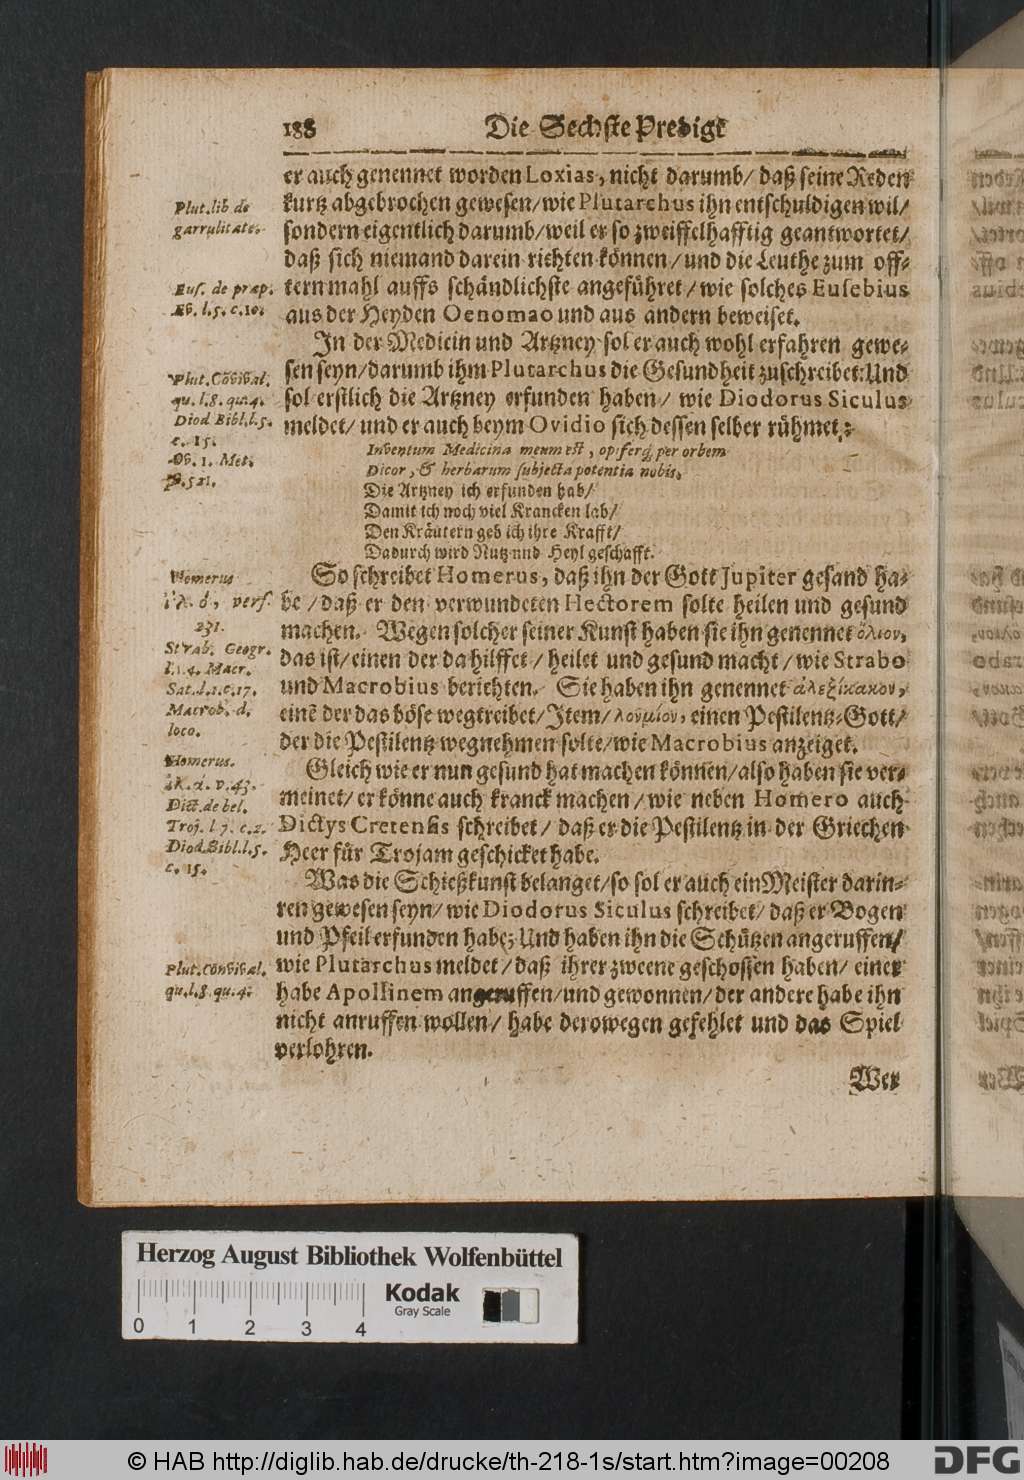 188 Die Sechste Predigt
er auch genennet worden Loxias, nicht darumb/ daß seine Reden
kurtz abgebrochen gewesen/ wie Plutarchus ihn entschuldigen wil/
sondern eigentlich darumb/ weil er so zweiffelhafftig geantwortet/
daß sich niemand darein richten können/ und die Leuthe zum öff-
tern mahl auffs schändlichste angeführet/ wie solches Eusebius
aus der Heyden Oenomao und aus andern beweiset.
In der Medicin und Artzney sol er auch wohl erfahren gewe-
sen seyn/ darumb ihm Plutarchus die Gesundheit zuschreibet: Und
sol erstlich die Artzney erfunden haben/ wie Diodorus Siculus
meldet/ und er auch beym Ovidio sich dessen selber rühmet:
Inventum Medicina meum est, opiferq; per orbem
Dicor, & herbarum subjecta potentia nobis.
Die Artzney ich erfunden hab/
Damit ich noch viel Krancken lab/
Den Kräutern geb ich ihre Krafft/
Dadurch wird Nutz und Heyl geschafft.
So schreibet Homerus, daß ihn der Gott Jupiter gesand ha-
be/ daß er den verwundeten Hectorem solte heilen und gesund
machen. Wegen solcher seiner Kunst haben sie ihn genennet ὄλιον,
das ist/ einen der da hilffet/ heilet und gesund macht/ wie Strabo
und Macrobius berichten. Sie haben ihn genennet ἀλεξίκακον,
einē der das böse wegtreibet/ Item/ λουμίον, einen Pestilentz-Gott/
der die Pestilentz wegnehmen solte/ wie Macrobius anzeiget.
Gleich wie er nun gesund hat machen können/ also haben sie ver-
meinet/ er könne auch kranck machen/ wie neben Homero auch
Dictys Cretensis schreibet/ daß er die Pestilentz in der Griechen
Heer für Trojam geschicket habe.
Was die Schießkunst belanget/ so sol er auch ein Meister darin-
ren gewesen seyn/ wie Diodorus Siculus schreibet/ daß er Bogen
und Pfeil erfunden habe; Und haben ihn die Schützen angeruffen/
wie Plutarchus meldet/ daß ihrer zweene geschossen haben/ einer
habe Apollinem angeruffen/ und gewonnen/ der andere habe ihn
nicht anruffen wollen/ habe derowegen gefehlet und das Spiel
verlohren.
Wer
Plut. lib de
garrulitate.
Eus. de præp.
Ev. l. 5. c. 10.
Plut. Cōvival.
qu. l. 8. qu. 4.
Diod Bibl. l. 5.
c. 15.
Ov. 1. Met.
v. 521.
Homerus
Ἰλ. ό, vers.
231.
Strab. Geogr.
l. 14. Macr.
Sat. l. 1. c. 17.
Macrob. d.
loco.
Homerus.
v. 43.
Dict. de bel.
Troj. l 7. c. 2.
Diod. Bibl. l. 5.
c. 15.
Plut. Convival.
qu. l. 8. qu. 4.
Herzog August Bibliothek Wolfenbüttel
Kodak
Gray Scale
0 1 2 3 4
© HAB http://diglib.hab.de/drucke/th-218-1s/start.htm?image=00208
DFG